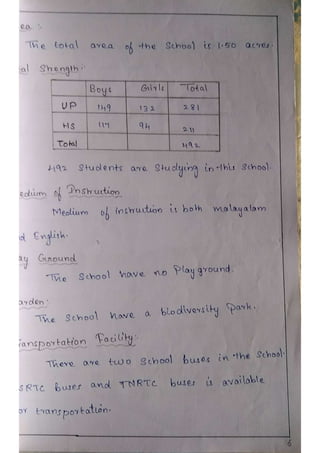 ea :
The total area of the School is 1.50 acres.
al Strength:
Boys Girls Total
UP 149 132 281
HS 117 94 211
Total 492
492 Students are Studying in this School.
edium of Instruction
Medium of instruction is both malayalam
d English.
ay Ground
The School have no Play ground.
arden:
The School have a biodiversity Park.
ansportation Facility:
There are two School buses in the School.
SRTC buses and TNRTC buses is available
or transportation.
6